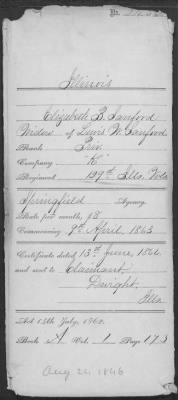 Illinois
Elizabeth B. Sanford
Widow of Lewis W. Sanford
Rank Priv.
Company "K"
Regiment 129th Ills. Vols
Springfield Agency.
Rate per month, $8
Commencing 9th April 1863
Certificate dated 13th June, 1864
and sent to Claimant,
Dwight,
Ills.
Act 14th July, 1862.
Book A Vol. 1 Page 173
Aug 22 1846